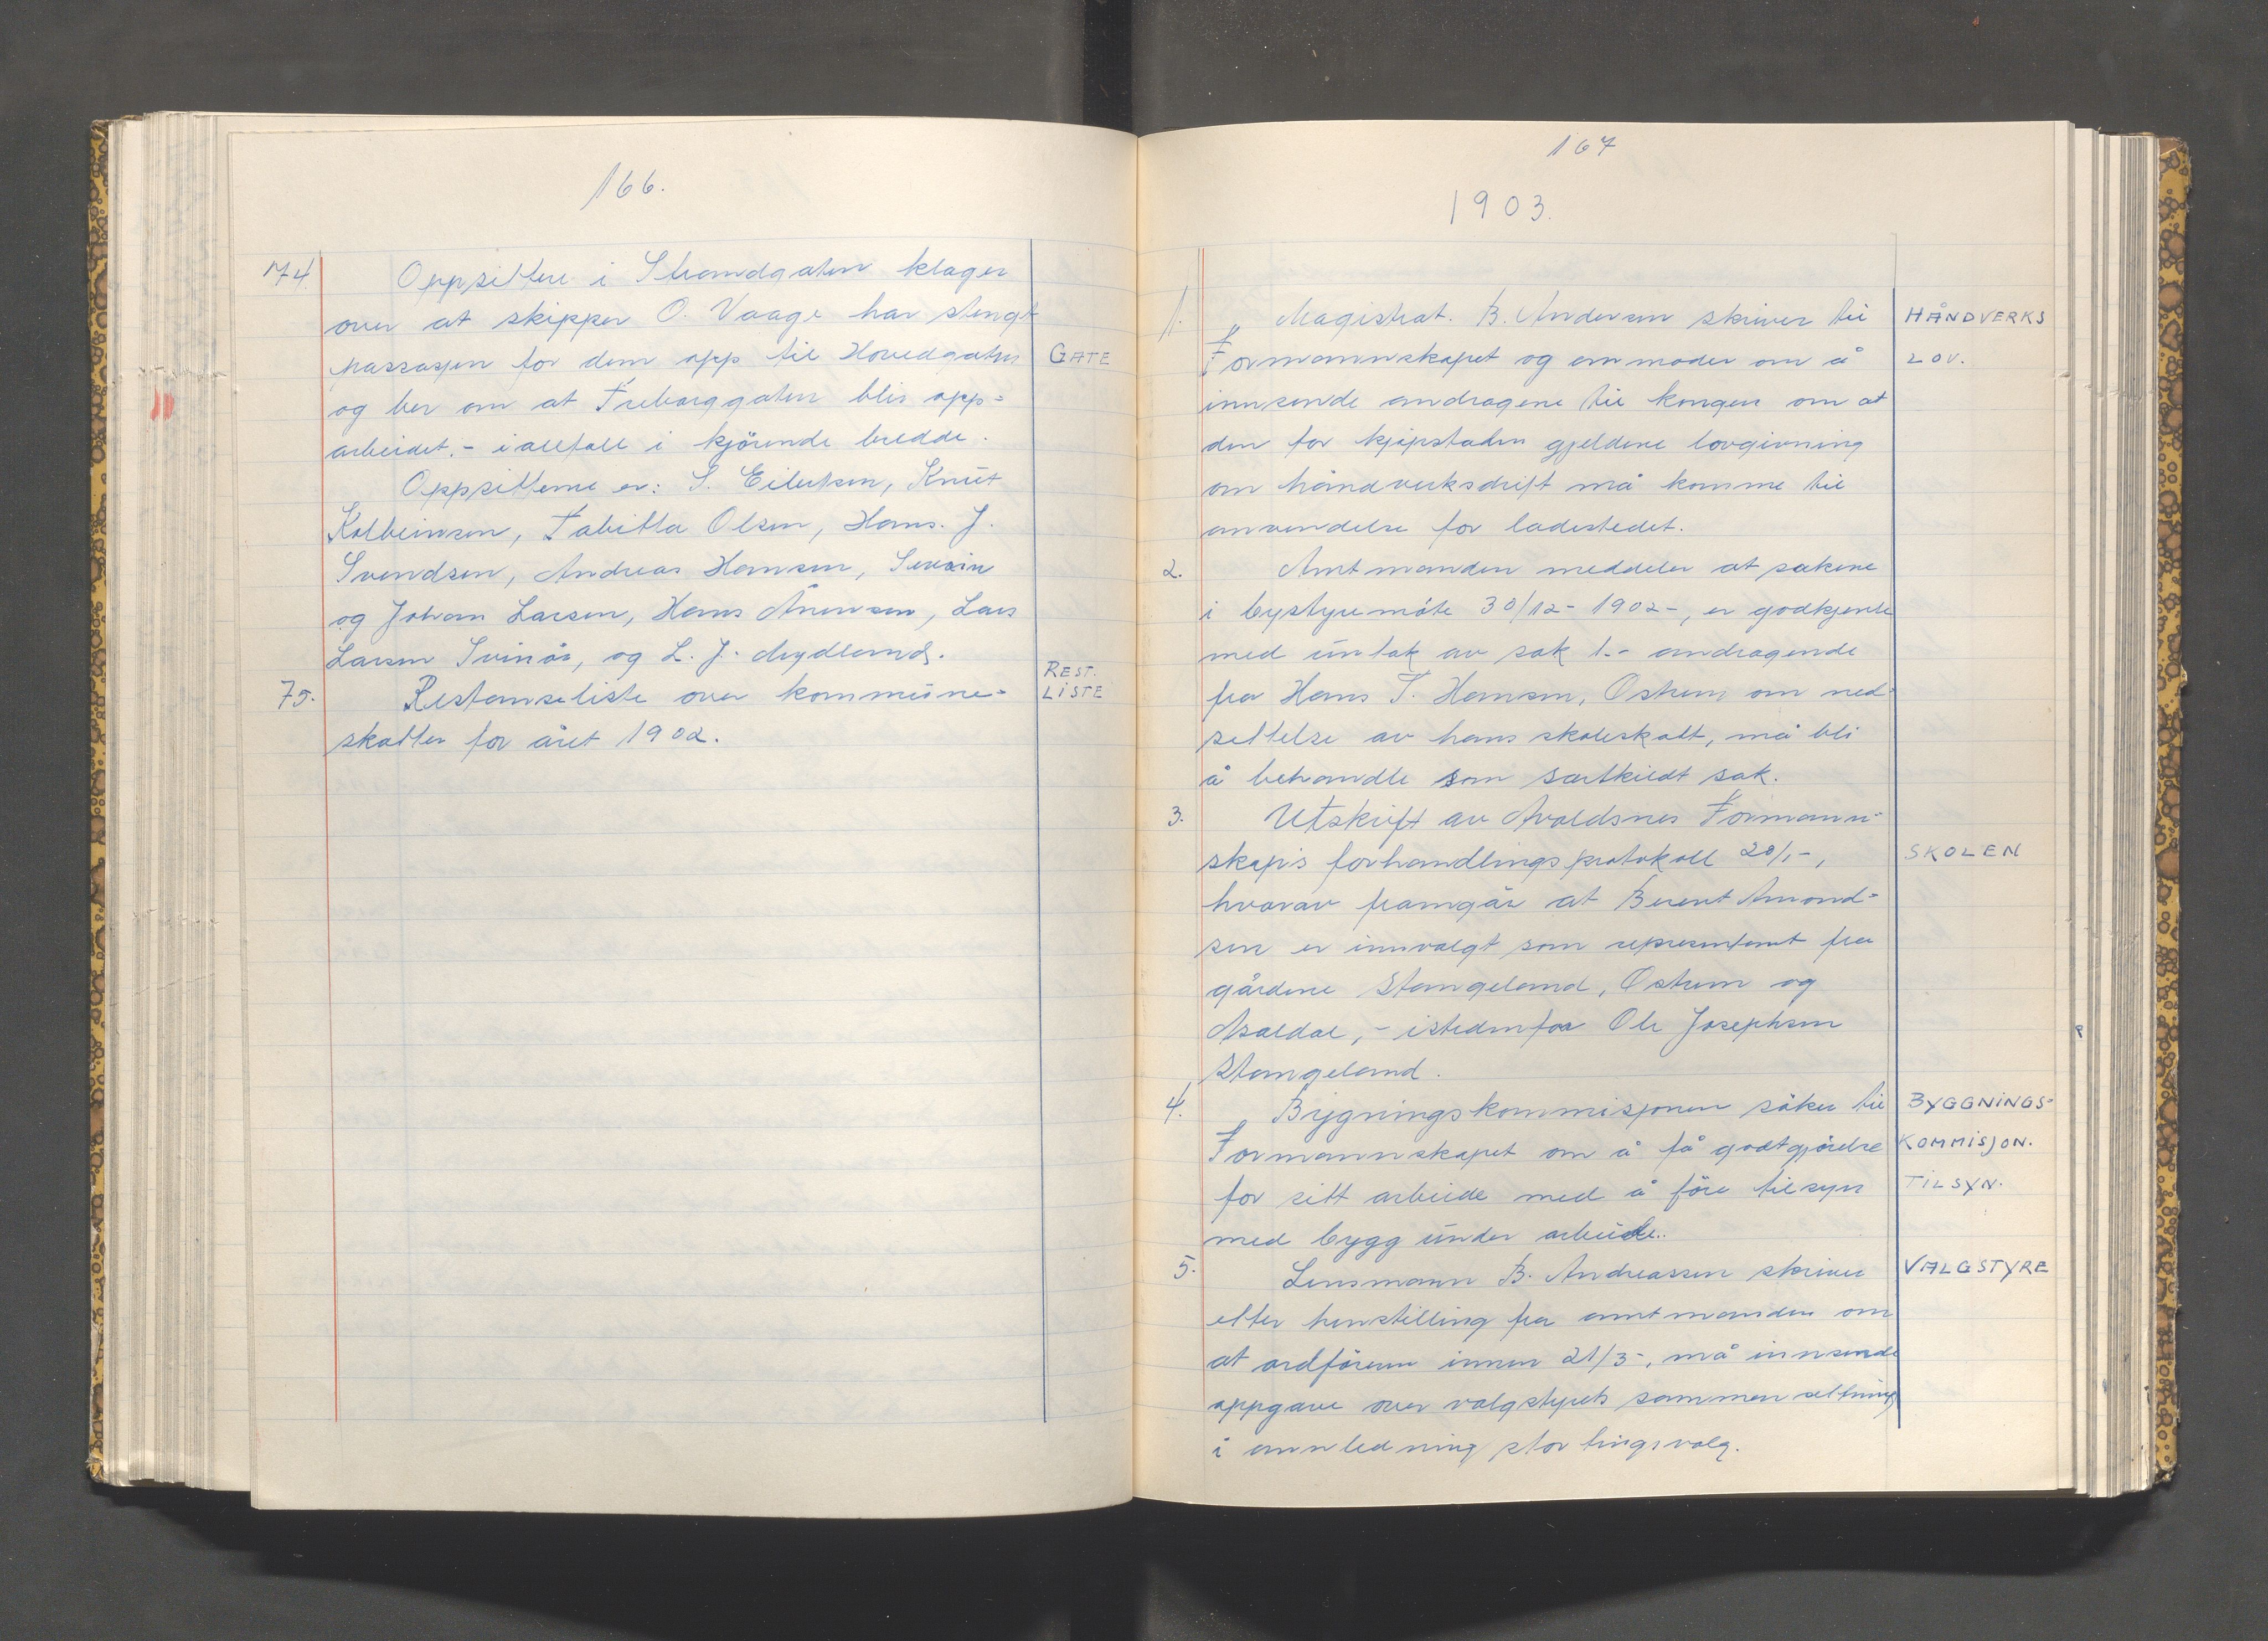 166.
74. Oppsittere i Strandgaten klager
over at skipper O. Vaage har stengt
passasjen for dem opp til Hovedgaten
GATE
og ber om at Treborggaten blir opp=
arbeidet. - iallfall i kjörende bredde.
Oppsitterne er: S. Eileksen, Knut
Kolbeinsen, Tabitta Olsen, Hans. J.
Svendsen, Andreas Hansen, Serin
og Johan Larsen, Hans Ånensen, Lars
Larsen Svinås, og L. J. Mydland.
REST.
LISTE
75. Restanseliste over kommune=
skatter for året 1902.
167
1903.
1. Magistrat. B. Andersen skriver til
HÅNDVERKS
Formannskapet og anmoder om å
LOV.
innsende andragene til kongen om at
den for kjøpstaden gjeldene lovgivning
om håndverksdrift må komme til
anvendelse for ladestedet.
2. Amtmanden meddeler at sakene
i bystyremöte 30/12 - 1902 -, er godkjente
med untak av sak 1. - andragende
fra Hans T. Hansen, Östrem om ned=
settelse av hans skoleskatt, må bli
å behandle som særskildt sak.
3. Utskrift av Avaldsnes Formann=
skap's forhandlingsprotokoll 20/1 -,
SKOLEN
hvorav framgår at Berent Amond=
sen er innvalgt som representant fra
gårdene Stangeland, Östrem og
Åsaldal, - istedenfor Ole Josephsen
Stangeland.
4. Bygningskommisjonen söker til
BYGGNINGS=
Formannskapet om å få godtgjörelse
KOMMISJON.
for sitt arbeide med å före tilsyn
TILSYN.
med bygg under arbeide.
5. Lensmann B. Andreassen skriver
VALGSTYRE
etter henstilling fra amtmanden om
at ordföreren innen 21/3 -, må innsende
oppgave over valgstyrets sammensetning
i annledning stortingsvalg.